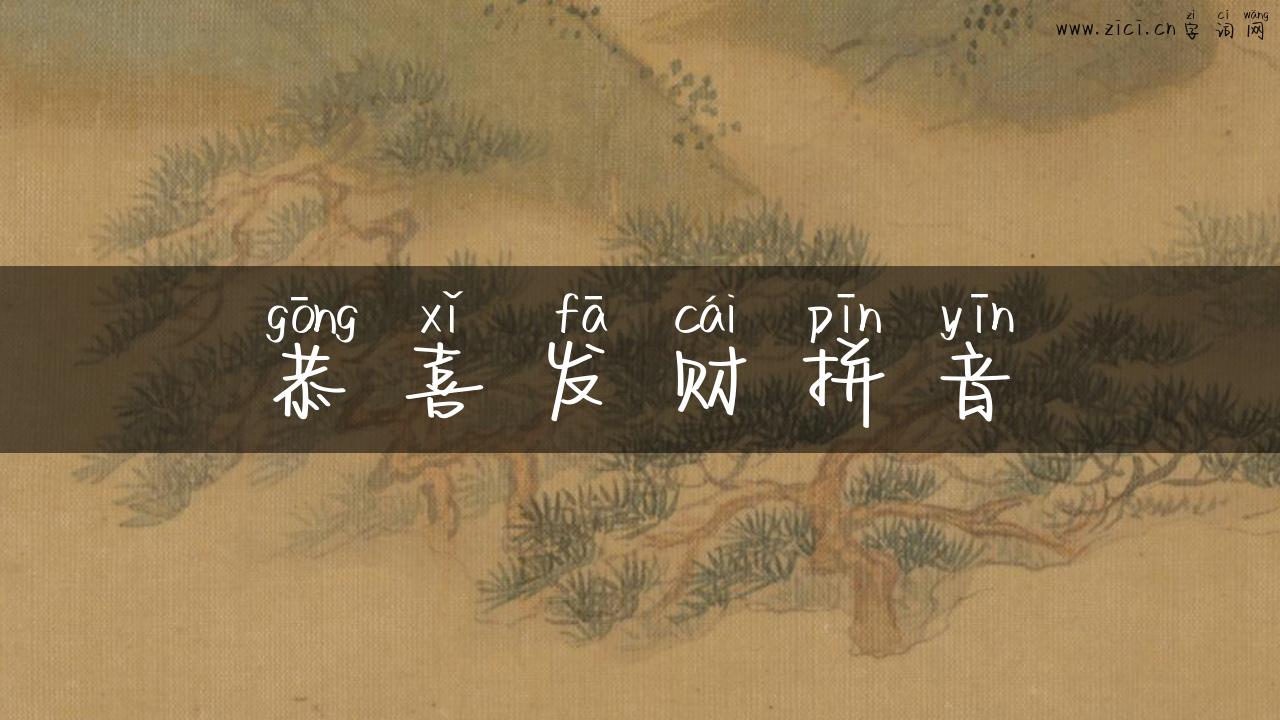 zì cí wǎng
www.zici.cn 字 词 网
gōng xǐ fā cái pīn yīn
恭 喜 发 财 拼 音